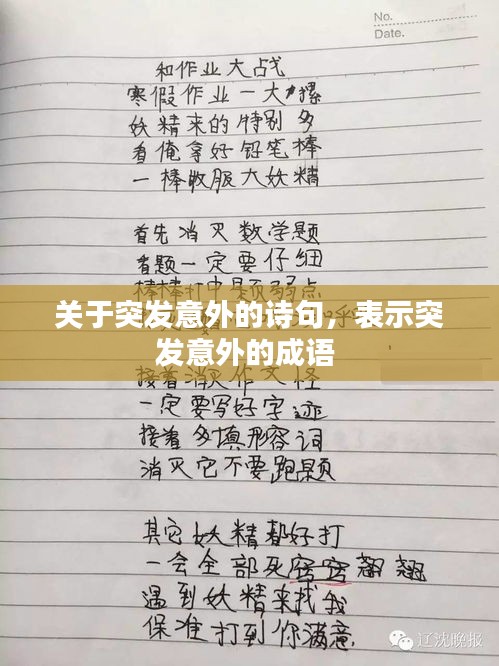 No.
Date.
和作业大战
寒假作业一大摞
妖精来的特别多
看俺拿好铅笔棒
一棒收服大妖精
首先消灭数学题
看题一定要仔细
棒棒打中题弱点
关于突发意外的诗句，表示突
发意外的成语
接着消灭作文怪
一定要写好字迹
接着多填形容词
消灭它不要跑题
其它妖精都好打
一会全部死窍窍翘翘
遇到妖精来找我
保准打到你满意
辽沈晚报